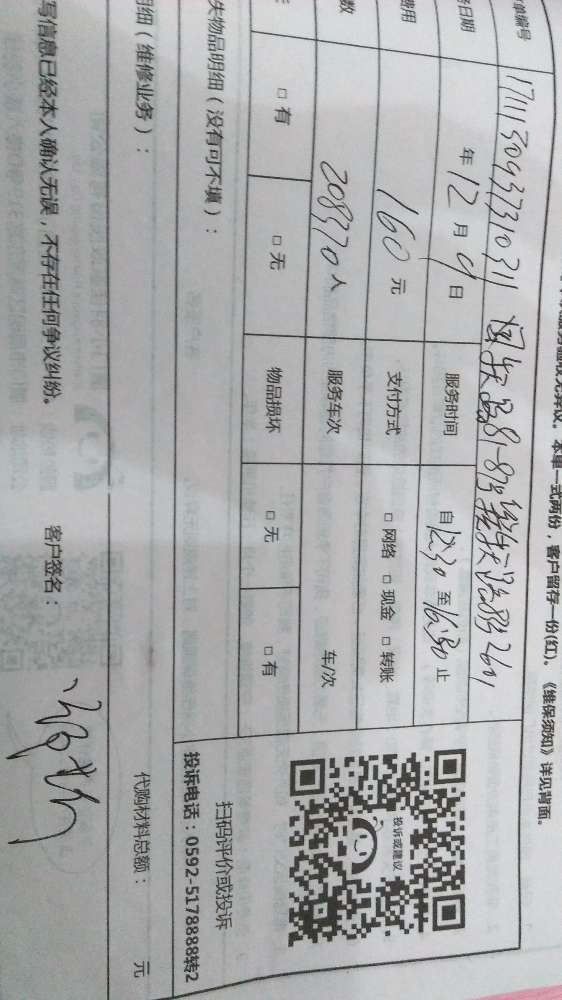 服务验收无异议。本单一式两份，客户留存一份(红)。《维保须知》详见背面。
单编号 1711130937310311
日期 年12月9日 服务时间 自12:30至16:30止
费用 160元 支付方式 □网络 □现金 □转账
数 208370人 服务车次 车/次
□有 □无 物品损坏 □无 □有
失物品明细（没有可不填）：
明细（维修业务）：
代购材料总额： 元
投诉或建议
扫码评价或投诉
投诉电话：0592-5178888转2
写信息已经本人确认无误，不存在任何争议纠纷。 客户签名：